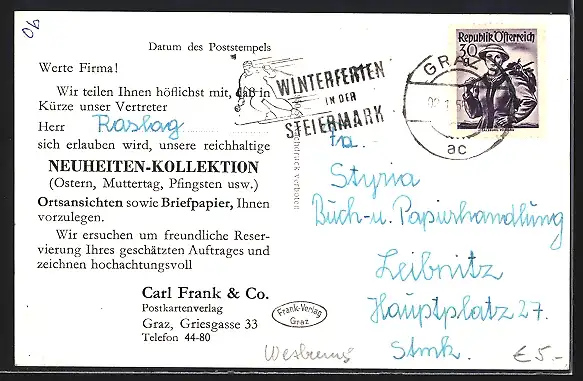 90
Datum des Poststempels
Werte Firma!
Wir teilen Ihnen höflichst mit, daß in
Kürze unser Vertreter
Herr Raslag
sich erlauben wird, unsere reichhaltige
NEUHEITEN-KOLLEKTION
(Ostern, Muttertag, Pfingsten usw.)
Ortsansichten sowie Briefpapier, Ihnen
vorzulegen.
Wir ersuchen um freundliche Reser-
vierung Ihres geschätzten Auftrages und
zeichnen hochachtungsvoll
Carl Frank & Co.
Postkartenverlag
Graz, Griesgasse 33
Telefon 44-80
WINTERFERIEN
IN DER
STEIERMARK
GRAZ
ac
Republik Österreich
30
Nachdruck verboten
Frank-Verlag
Graz
Fa.
Styria
Buch- u. Papierhandlung
Leibnitz
Hauptplatz 27.
Stmk.
Werbung
€ 5.-